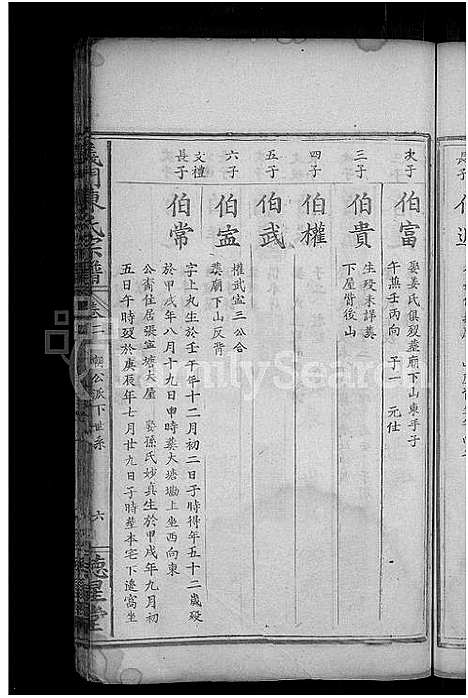 次子
伯富
娶姜氏俱歿塟廟下山東乎子
午煮壬丙向 子一 元仕
三子
伯貴
生歿未詳塟
下屋背後山
四子
伯權
五子
伯武
六子
伯宝
權武宝三公合
塟廟下山反背
文禮
長子
伯常
字上九生於壬午年十二月初二日子時得年五十二歲歿
於甲戌年八月十九日申時塟大塘墈上坐西向東
公喬住居張家塘大屋 娶孫氏妙真生於甲戌年九月初
五日午時歿於庚辰年七月廿九日子時塟本宅下邊窩坐
義門陳氏宗譜
卷二
公派下世系
六
德星堂
FamilySearch